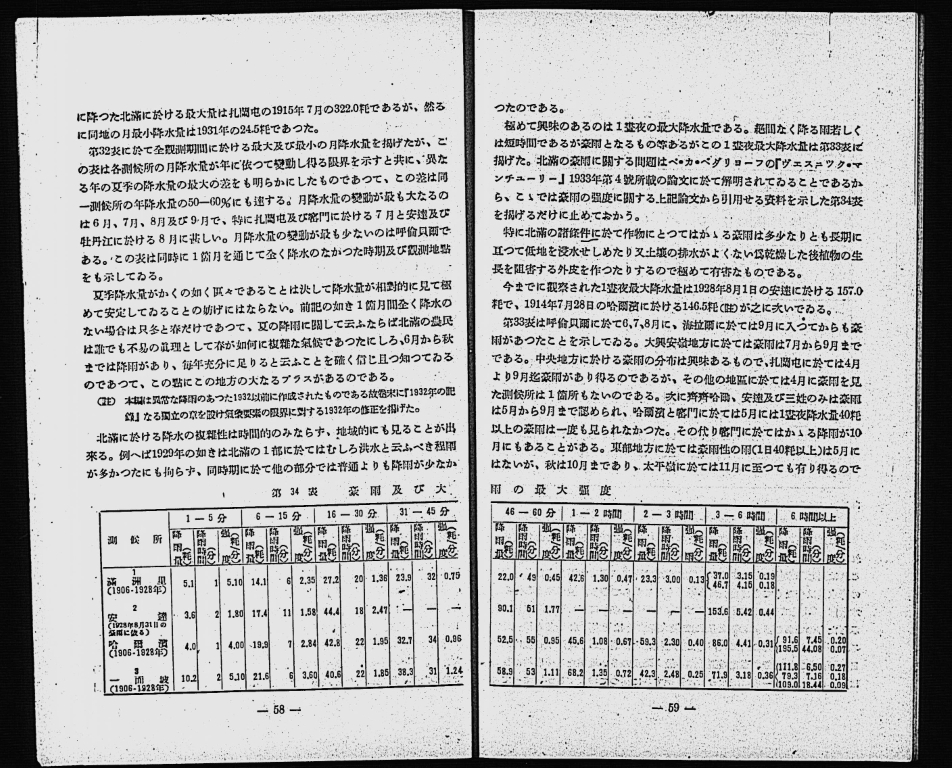 に降つた北滿に於ける最大量は扎闌屯の1915年7月の322.0粍であるが、然る
に同地の月最小降水量は1931年の24.5粍であつた。
第32表に於て全觀測期間に於ける最大及び最小の月降水量を揭げたが、こ
の表は各測候所の月降水量が年に依つて變動し得る限界を示すと共に、異な
る年の夏季の降水量の最大の差をも明らかにしたものであつて、この差は同
一測候所の年降水量の50―60%にも達する。月降水量の變動が最も大なるの
は6月、7月、8月及び9月で、特に扎闌屯及び窰門に於ける7月と安達及び
牡丹江に於ける8月に甚しい。月降水量の變動が最も少ないのは呼倫貝爾で
ある。この表は同時に1箇月を通じて全く降水のなかつた時期及び觀測地點
をも示してゐる。
夏季降水量がかくの如く區々であることは決して降水量が相對的に見て極
めて安定してゐることの妨げにはならない。前記の如き1箇月間全く降水の
ない場合は只冬と春だけであつて、夏の降雨に關して云ふならば北滿の農民
は誰でも不易の眞理として春が如何に複雜な氣候であつたにしろ、6月から秋
までは降雨があり、每年充分に足りると云ふことを確く信じ且つ知つてゐる
のであつて、この點にこの地方の大なるプラスがあるのである。
(註) 本稿は異常な降雨のあつた1932以前に作成されたものである故卷末に『1932年の記
錄』なる獨立の章を設け氣象要素の限界に對する1932年の修正を揭げた。
北滿に於ける降水の複雜性は時間的のみならず、地域的にも見ることが出
來る。例へば1929年の如きは北滿の1部に於てはむしろ洪水と云ふべき程雨
が多かつたにも拘らず、同時期に於て他の部分では普通よりも降雨が少なか
第34表 豪雨及び大
測候所 1―5分 6―15分 16―30分 31―45分
降雨量(粍) 降雨時間(分) 强度(粍/分) 降雨量(粍) 降雨時間(分) 强度(粍/分) 降雨量(粍) 降雨時間(分) 强度(粍/分) 降雨量(粍) 降雨時間(分) 强度(粍/分)
1
滿洲里 5.1 1 5.10 14.1 6 2.35 27.2 20 1.36 23.9 32 0.75
(1906-1928年)
2
安達 3.6 2 1.80 17.4 11 1.58 44.4 18 2.47 ― ― ―
(1928年8月31日の
豪雨に依る)
哈爾濱 4.0 1 4.00 19.9 7 2.84 42.8 22 1.95 32.7 34 0.96
(1906-1928年)
3
一面坡 10.2 2 5.10 21.6 6 3.60 40.6 22 1.85 38.3 31 1.24
(1906-1928年)
― 58 ―
つたのである。
極めて興味のあるのは1晝夜の最大降水量である。絕間なく降る雨若しく
は短時間であるが豪雨となるもの等あるがこの1晝夜最大降水量は第33表に
揭げた。北滿の豪雨に關する問題はベ・カ・ペダリョーフの『ヴェスニツク・マ
ンチューリー』1933年第4號所載の論文に於て解明されてゐることであるか
ら、こゝでは豪雨の强度に關する上記論文から引用せる資料を示した第34表
を揭げるだけに止めておかう。
特に北滿の諸條件に於て作物にとつてはかゝる豪雨は多少なりとも長期に
亘つて低地を浸水せしめたり又土壤の排水がよくない爲乾燥した後植物の生
長を阻害する外皮を作つたりするので極めて有害なものである。
今までに觀察された1晝夜最大降水量は1928年8月1日の安達に於ける157.0
粍で、1914年7月28日の哈爾濱に於ける146.5粍(註)が之に次いでゐる。
第33表は呼倫貝爾に於て6,7,8月に、海拉爾に於ては9月に入つてからも豪
雨があつたことを示してゐる。大興安嶺地方に於ては豪雨は7月から9月まで
である。中央地方に於ける豪雨の分布は興味あるもので、扎闌屯に於ては4月
より9月迄豪雨があり得るのであるが、その他の地區に於ては4月に豪雨を見
た測候所は1箇所もないのである。次に齊齊哈爾、安達及び三姓のみは豪雨
は5月から9月まで認められ、哈爾濱と窰門に於ては5月には1晝夜降水量40粍
以上の豪雨は一度も見られなかつた。その代り窰門に於てはかゝる降雨が10
月にもあることがある。東部地方に於ては豪雨性の雨(1日40粍以上)は5月に
はないが、秋は10月まであり、太平嶺に於ては11月に至つても有り得るので
雨の最大强度
46―60分 1―2時間 2―3時間 3―6時間 6時間以上
降雨量(粍) 降雨時間(分) 强度(粍/分) 降雨量(粍) 降雨時間(分) 强度(粍/分) 降雨量(粍) 降雨時間(分) 强度(粍/分) 降雨量(粍) 降雨時間(分) 强度(粍/分) 降雨量(粍) 降雨時間(分) 强度(粍/分)
22.0 49 0.45 42.6 1.30 0.47 23.3 3.00 0.13 37.0 3.15 0.19
46.7 4.15 0.18
90.1 51 1.77 ― ― ― ― ― ― 153.6 5.42 0.44
52.5 55 0.95 45.6 1.08 0.67 59.3 2.30 0.40 86.0 4.41 0.31 91.6 7.45 0.20
195.5 44.08 0.07
58.9 53 1.11 68.2 1.35 0.72 42.3 2.48 0.25 71.9 3.18 0.36 111.8 6.50 0.27
79.3 7.16 0.18
109.0 18.44 0.09
― 59 ―